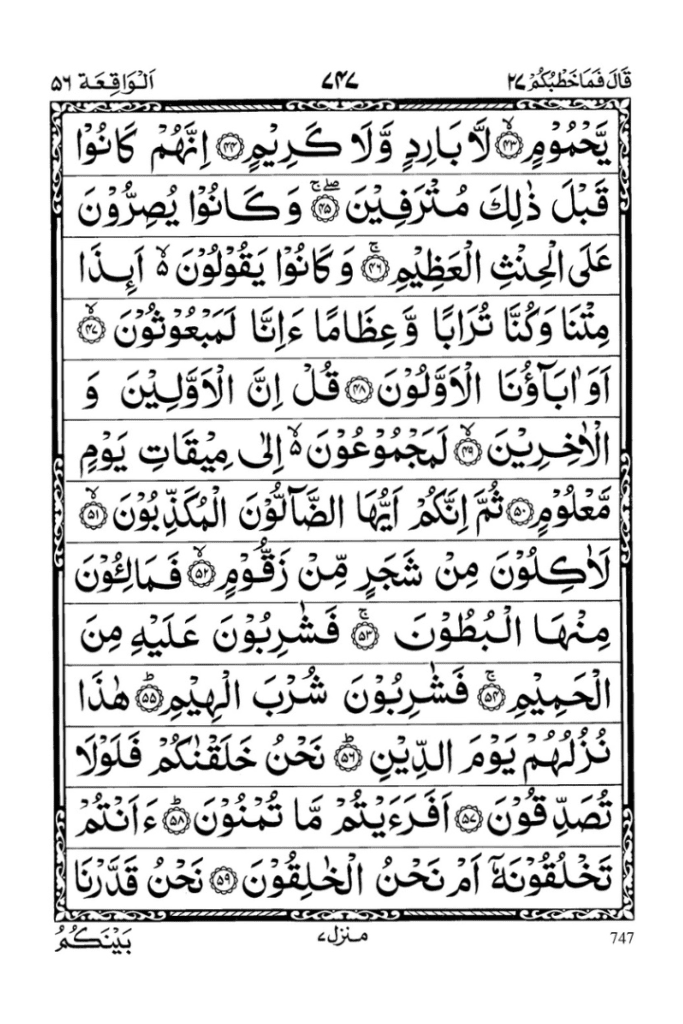 قَالَ فَمَا خَطْبُكُمْ ٢٧ ٧٤٧ اَلْوَاقِعَة ٥٦
يَّحْمُوْمٍ ۙ‏﴿۴۳﴾ لَّا بَارِدٍ وَّلَا كَرِيْمٍ ﴿۴۴﴾ اِنَّهُمْ كَانُوْا
قَبْلَ ذٰلِكَ مُتْرَفِيْنَ ۖۚ ﴿۴۵﴾ وَكَانُوْا يُصِرُّوْنَ
عَلَى الْحِنْثِ الْعَظِيْمِ ۚ ﴿۴۶﴾ وَكَانُوْا يَقُوْلُوْنَ ۙ۬ اَىِٕذَا
مِتْنَا وَكُنَّا تُرَابًا وَّعِظَامًا ءَاِنَّا لَمَبْعُوْثُوْنَ ۙ ﴿۴۷﴾
اَوَاٰبَآؤُنَا الْاَوَّلُوْنَ ﴿۴۸﴾ قُلْ اِنَّ الْاَوَّلِيْنَ وَ
الْاٰخِرِيْنَ ۙ ﴿۴۹﴾ لَمَجْمُوْعُوْنَ ۙ۬ اِلٰى مِيْقَاتِ يَوْمٍ
مَّعْلُوْمٍ ﴿۵۰﴾ ثُمَّ اِنَّكُمْ اَيُّهَا الضَّآلُّوْنَ الْمُكَذِّبُوْنَ ۙ ﴿۵۱﴾
لَاٰكِلُوْنَ مِنْ شَجَرٍ مِّنْ زَقُّوْمٍ ۙ ﴿۵۲﴾ فَمَالِـُٔوْنَ
مِنْهَا الْبُطُوْنَ ۚ ﴿۵۳﴾ فَشٰرِبُوْنَ عَلَيْهِ مِنَ
الْحَمِيْمِ ۚ ﴿۵۴﴾ فَشٰرِبُوْنَ شُرْبَ الْهِيْمِ ؕ ﴿۵۵﴾ هٰذَا
نُزُلُهُمْ يَوْمَ الدِّيْنِ ؕ ﴿۵۶﴾ نَحْنُ خَلَقْنٰكُمْ فَلَوْلَا
تُصَدِّقُوْنَ ﴿۵۷﴾ اَفَرَءَيْتُمْ مَّا تُمْنُوْنَ ؕ ﴿۵۸﴾ ءَاَنْتُمْ
تَخْلُقُوْنَهٗۤ اَمْ نَحْنُ الْخٰلِقُوْنَ ﴿۵۹﴾ نَحْنُ قَدَّرْنَا
بَيْنَكُمُ منزل ٧ 747